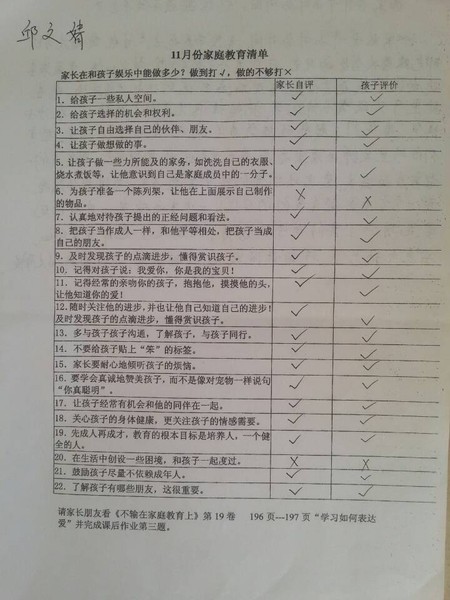 邱文婧
11月份家庭教育清单
家长在和孩子娱乐中能做多少？做到打√，做的不够打×
家长自评 孩子评价
1．给孩子一些私人空间。 ✓ ✓
2．给孩子选择的机会和权利。 ✓ ✓
3．让孩子自由选择自己的伙伴、朋友。 ✓ ✓
4．让孩子做想做的事。 ✓ ✓
5．让孩子做一些力所能及的家务，如洗洗自己的衣服、
烧水煮饭等，让他意识到自己是家庭成员中的一分子。 ✓ ✓
6．为孩子准备一个陈列架，让他在上面展示自己制作
的物品。 × ×
7．认真地对待孩子提出的正经问题和看法。 ✓ ✓
8．把孩子当作成人一样，和他平等相处，把孩子当成
自己的朋友。 ✓ ✓
9．及时发现孩子的点滴进步，懂得赏识孩子。 ✓ ✓
10．记得对孩子说：我爱你，你是我的宝贝！ ✓ ✓
11．记得经常的亲吻你的孩子，抱抱他，摸摸他的头，
让他知道你的爱！ ✓ ✓
12.随时关注他的进步，并也让他自己知道自己的进步！
及时发现孩子的点滴进步，懂得赏识孩子。 ✓ ✓
13．多与孩子孩子沟通，了解孩子，与孩子同行。 ✓ ✓
14．不要给孩子贴上“笨”的标签。 ✓ ✓
15．家长要耐心地倾听孩子的烦恼。 ✓ ✓
16．要学会真诚地赞美孩子，而不是像对宠物一样说句
“你真聪明”。 ✓ ✓
17．让孩子经常有机会和他的同伴在一起。 ✓ ✓
18．关心孩子的身体健康，更关注孩子的情感需要。 ✓ ✓
19．先成人再成才，教育的根本目标是培养人，一个健
全的人。 ✓ ✓
20．在生活中创设一些困境，和孩子一起度过。 × ×
21．鼓励孩子尽量不依赖成年人。 ✓ ✓
22．了解孩子有哪些朋友，这很重要。 ✓ ✓
请家长朋友看《不输在家庭教育上》第19卷 196页—197页“学习如何表达
爱”并完成课后作业第三题。